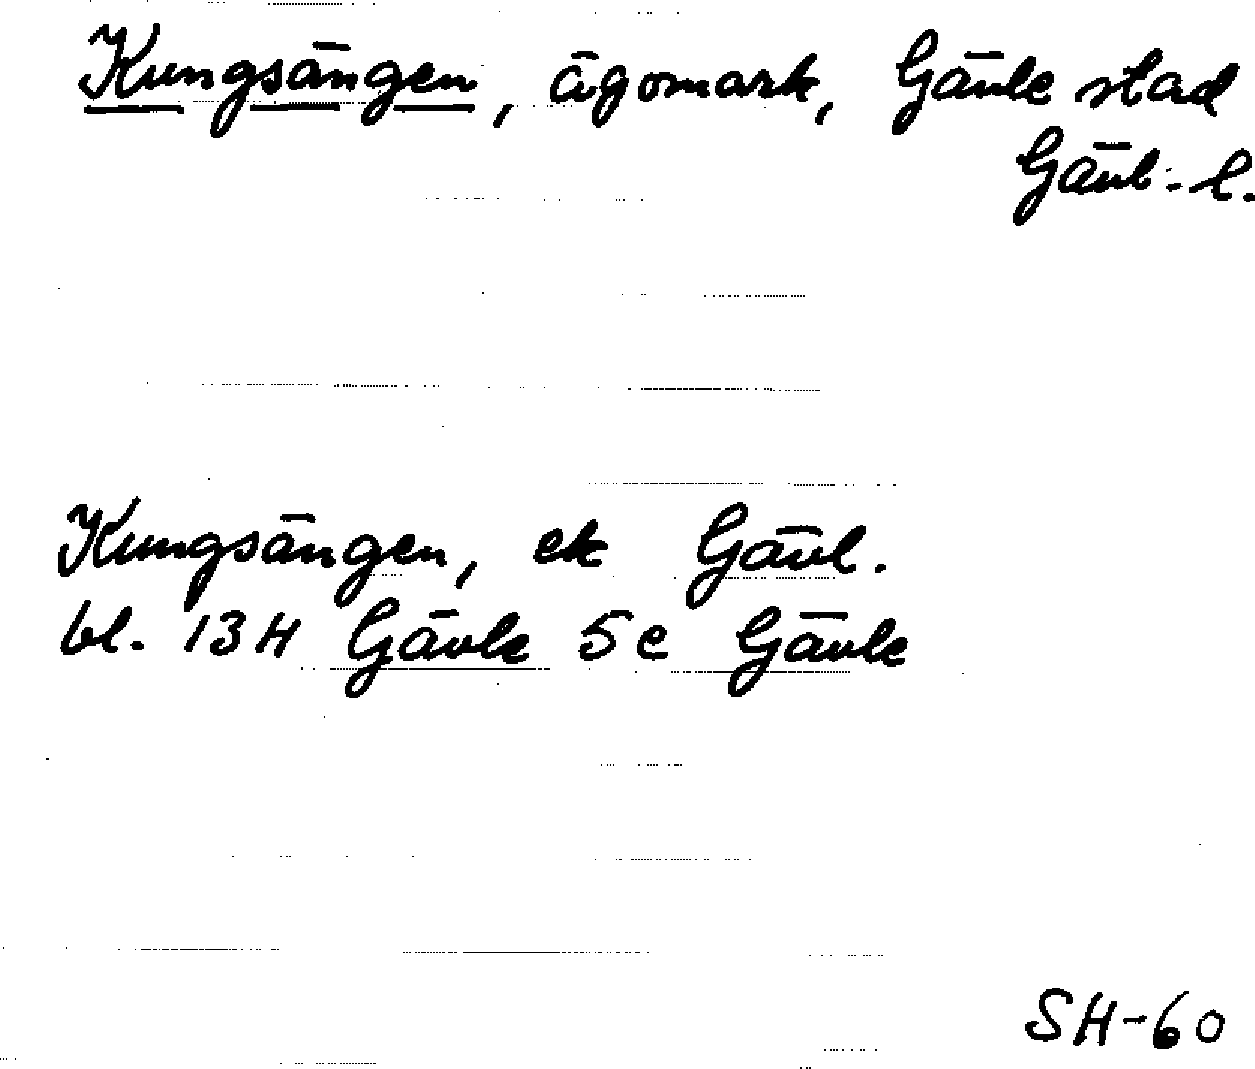 Kungsängen, ägomark, Gävle stad
Gävl. l.
Kungsängen, ek Gävl.
bl. 13H Gävle 5c Gävle
SH-60